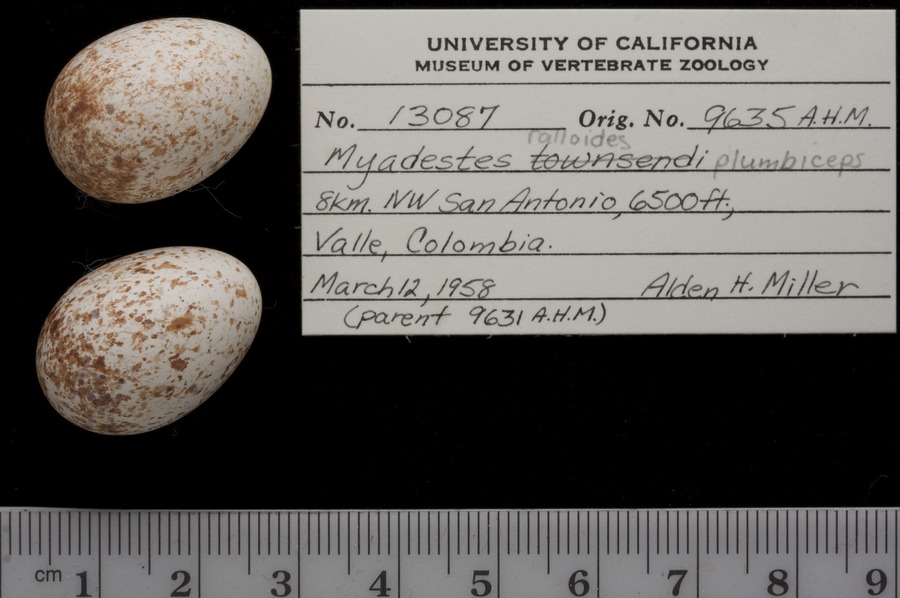 UNIVERSITY OF CALIFORNIA
MUSEUM OF VERTEBRATE ZOOLOGY
No. 13087 Orig. No. 9635 A.H.M.
ralloides
Myadestes townsendi plumbiceps
8km. NW San Antonio, 6500ft.,
Valle, Colombia.
March 12, 1958 Alden H. Miller
(parent 9631 A.H.M.)
cm 1 2 3 4 5 6 7 8 9